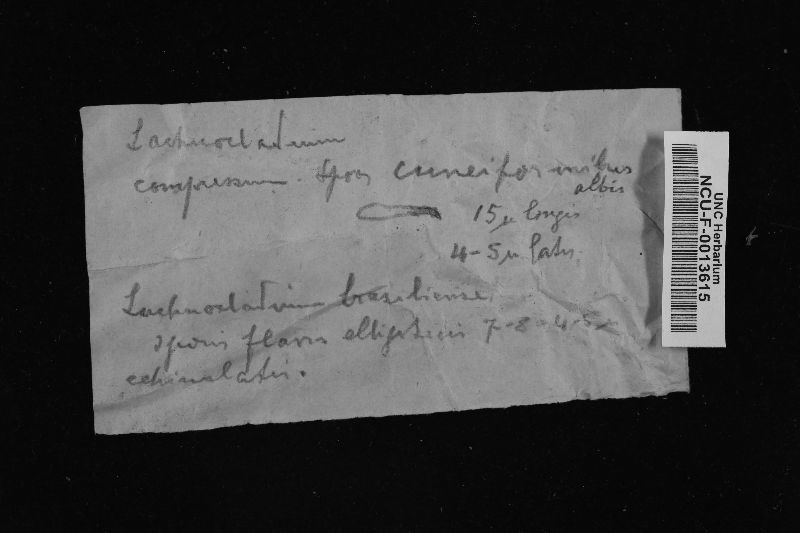 Lachnocladium
compressum. Spor cuneiformibus
albis
15 µ longis
4-5 µ latis
Lachnocladium brasiliense
sporis flavis ellipticis 7-8 = 4-5 µ
echinulatis.
UNC Herbarium
NCU-F-0013615